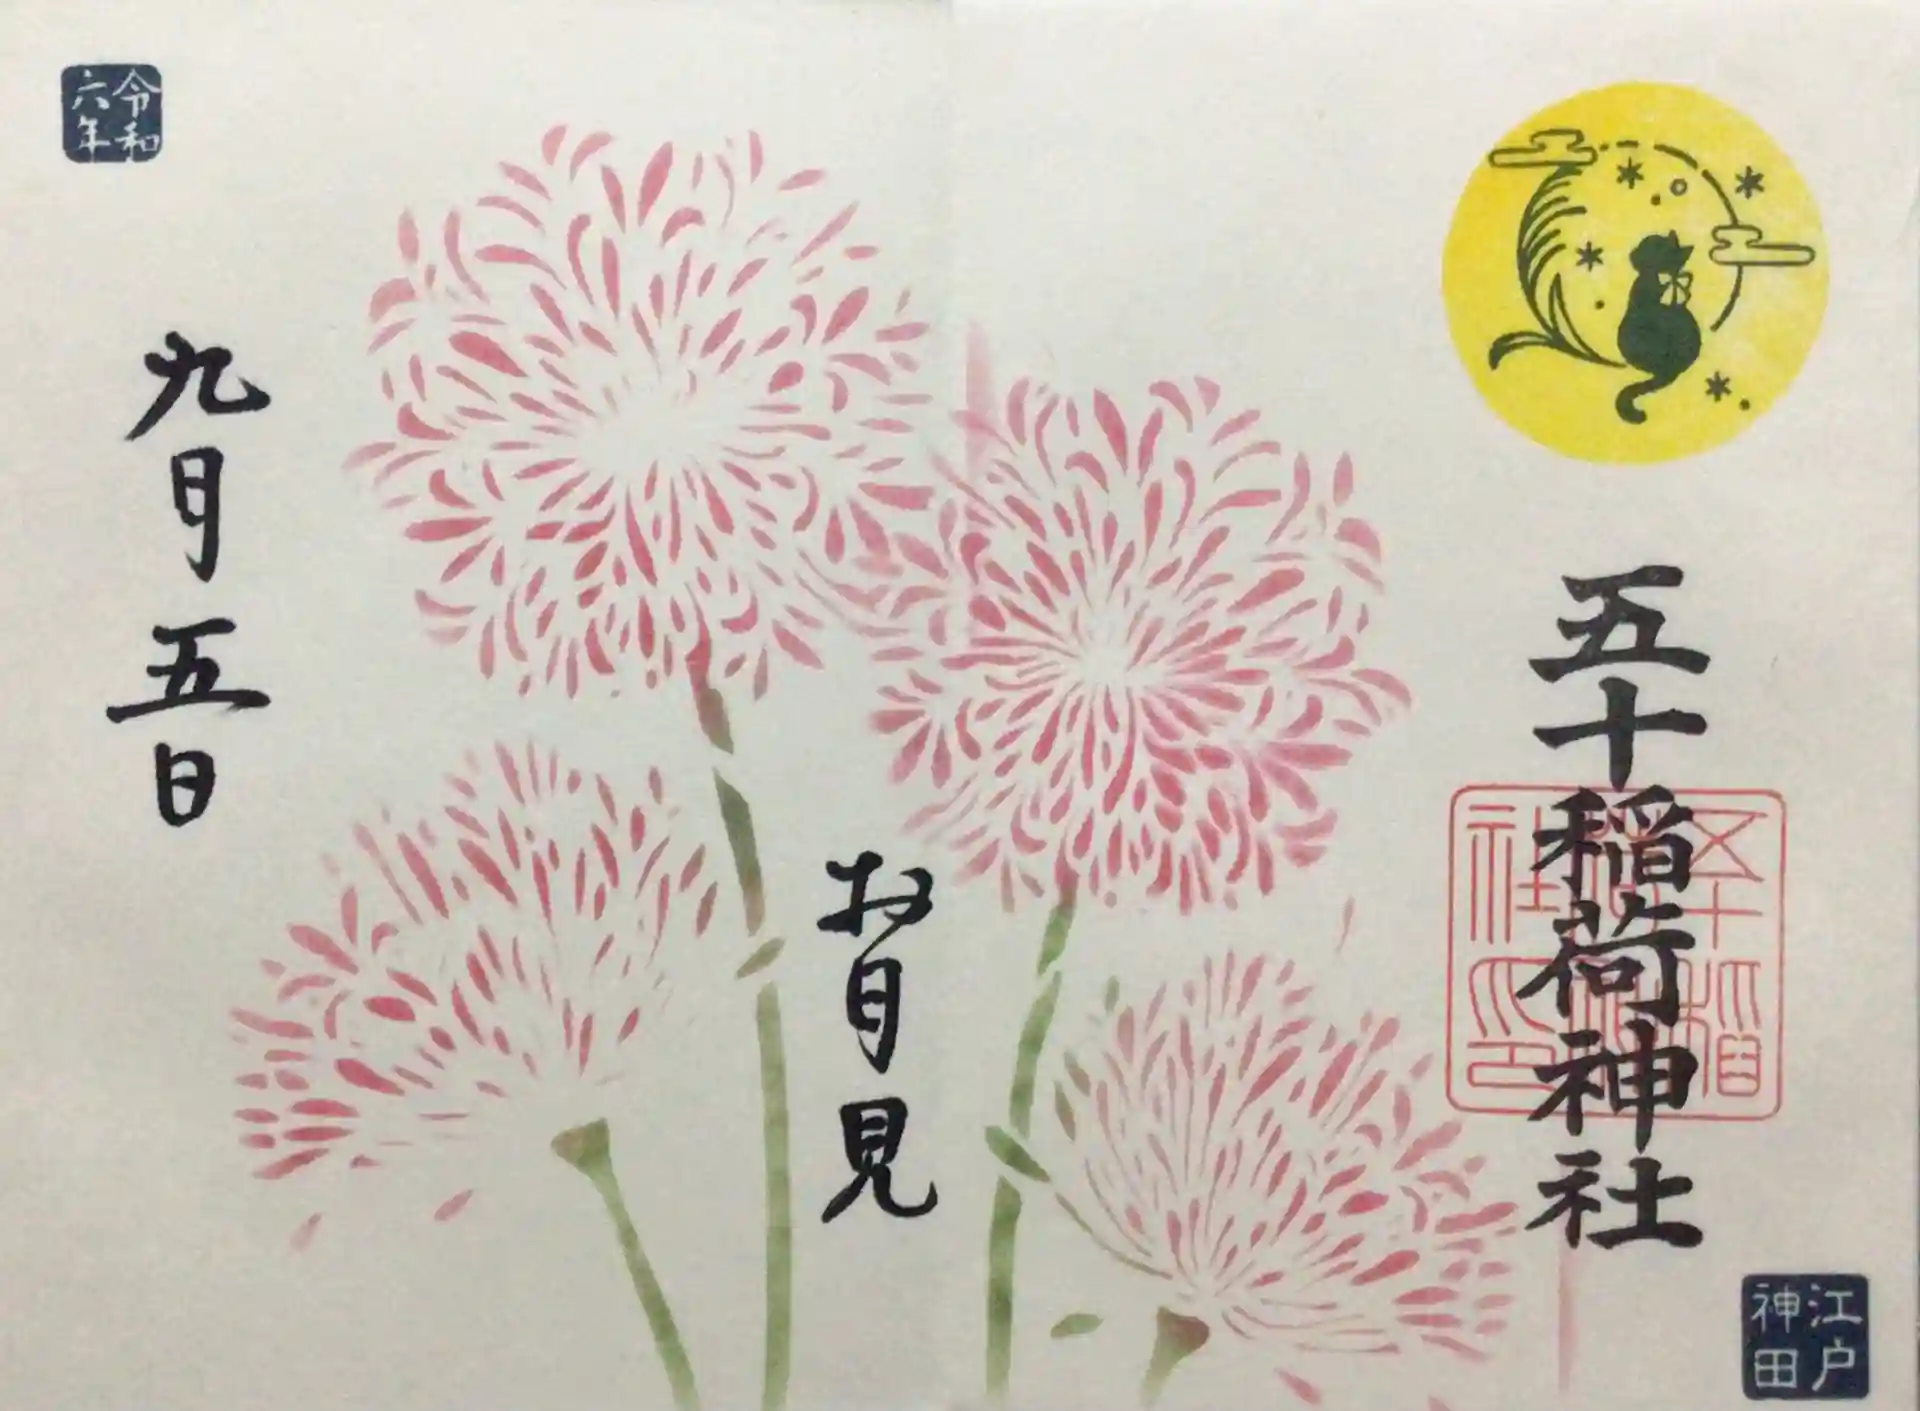 五十稲荷神社
五十稲荷神社印
江戸神田
お月見
九月五日
令和六年